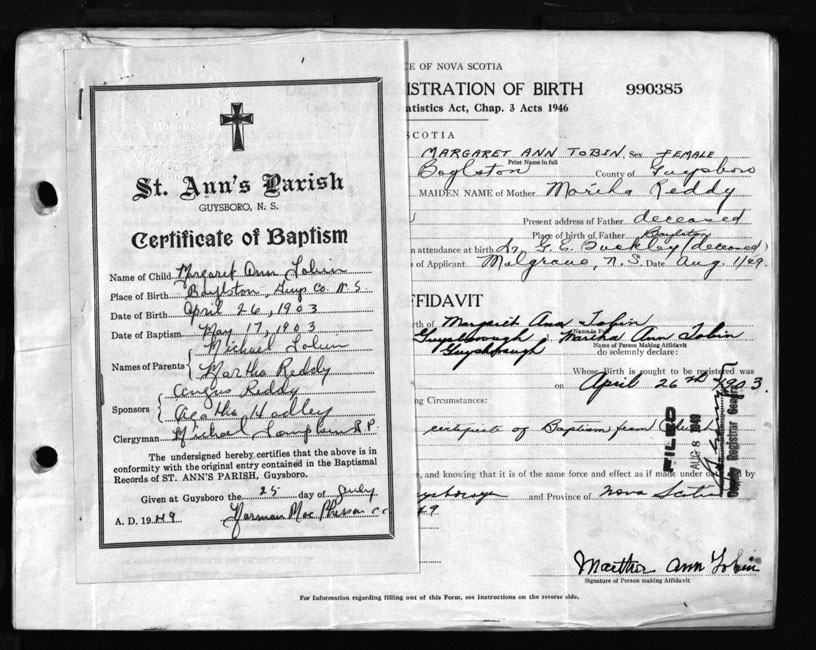 St. Ann's Parish
GUYSBORO, N. S.
Certificate of Baptism
Name of Child Margaret Ann Tobin
Place of Birth Boylston, Guys Co. N.S.
Date of Birth April 26, 1903
Date of Baptism May 17, 1903
Names of Parents { Michael Tobin
Martha Reddy
Sponsors { Angus Reddy
Agatha Hadley
Clergyman Michael P.P.
The undersigned hereby certifies that the above is in
conformity with the original entry contained in the Baptismal
Records of ST. ANN'S PARISH, Guysboro.
Given at Guysboro the 25 day of July
A. D. 1949 Norman Mac Pherson cc
CE OF NOVA SCOTIA
ISTRATION OF BIRTH 990385
tatistics Act, Chap. 3 Acts 1946
SCOTIA
MARGARET ANN TOBIN, Sex FEMALE
Print Name in full
Boylston County of Guysboro
MAIDEN NAME of Mother Martha Reddy
Present address of Father deceased
Place of birth of Father Boylston
n attendance at birth Dr. G. E. Buckley (deceased)
s of Applicant Mulgrave, N.S. Date Aug. 1/49.
FFIDAVIT
irth of Margaret Ann Tobin
Name in Full
Guysborough, Martha Ann Tobin
Name of Person Making Affidavit
Guysborough do solemnly declare:
Whose Birth is sought to be registered was
on April 26th 1903.
ng Circumstances:
certificate of Baptism from Church
FILED
AUG 8 1949
Deputy Registrar General
, and knowing that it is of the same force and effect as if made under oath by
and Province of Nova Scotia
49
Marther Ann Tobin
Signature of Person making Affidavit
For Information regarding filling out of this Form, see Instructions on the reverse side.